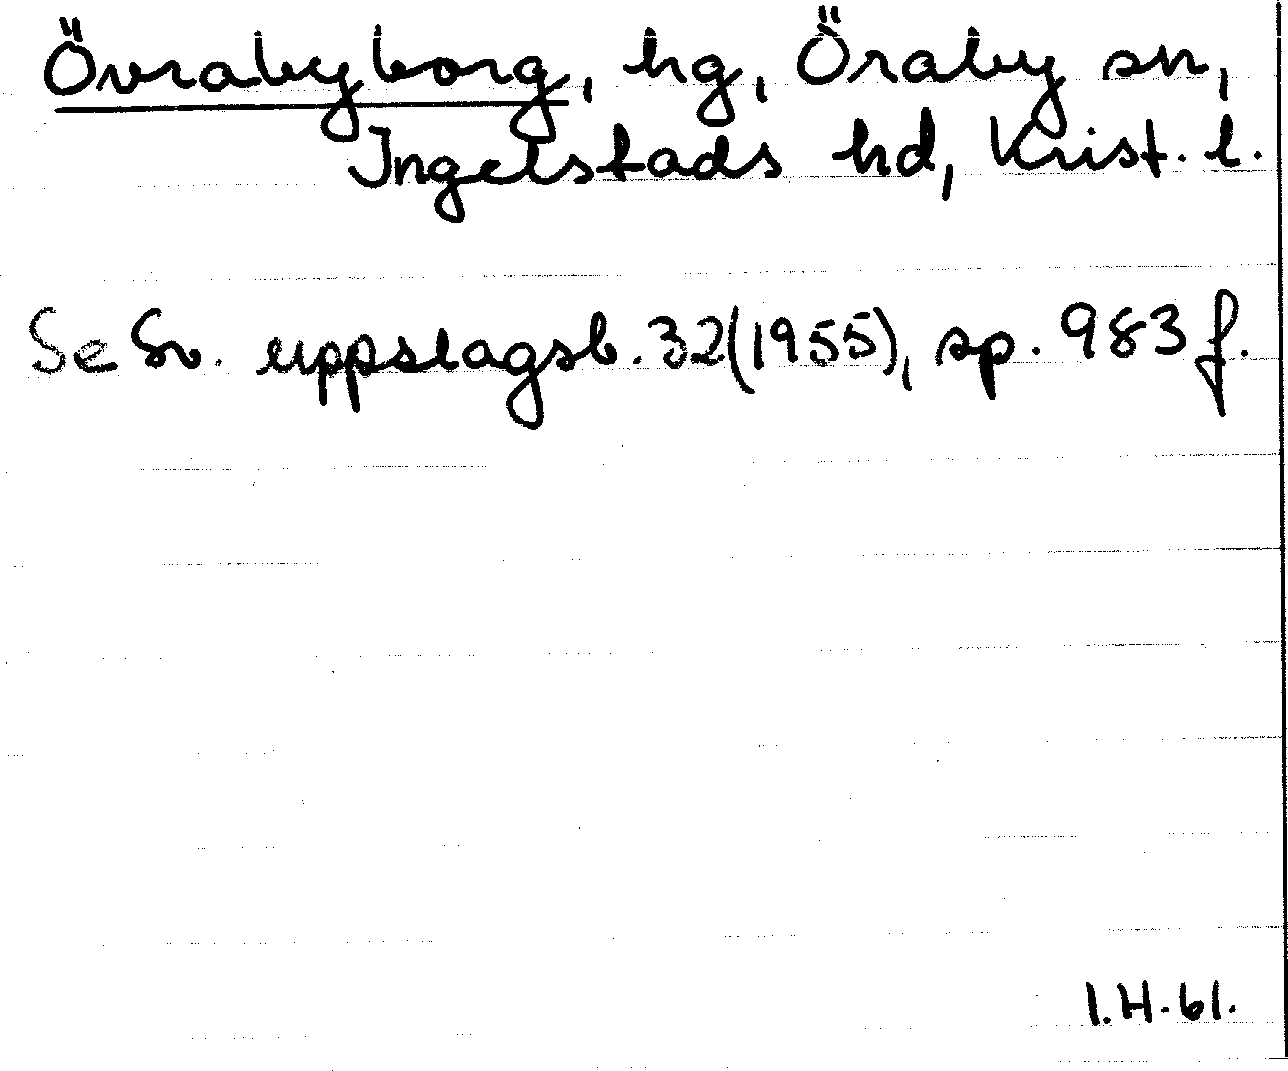 Övrabyborg, hg, Öraby sn,
Ingelstads hd, Krist. l.
Se Sv. uppslagsb. 32 (1955), sp. 983 f.
I.H. 61.